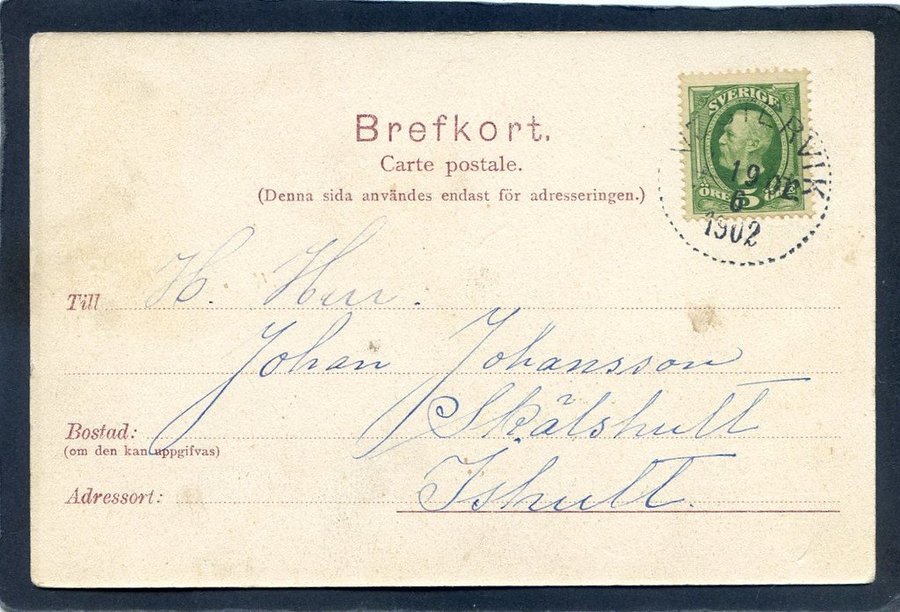 Brefkort.
Carte postale.
(Denna sida användes endast för adresseringen.)
SVERIGE
ÖRE 5
VIK
19 02
6
1902
Till H. Herr.
Johan Johansson
Bostad: Skälshult
(om den kan uppgifvas)
Adressort: Ishult.